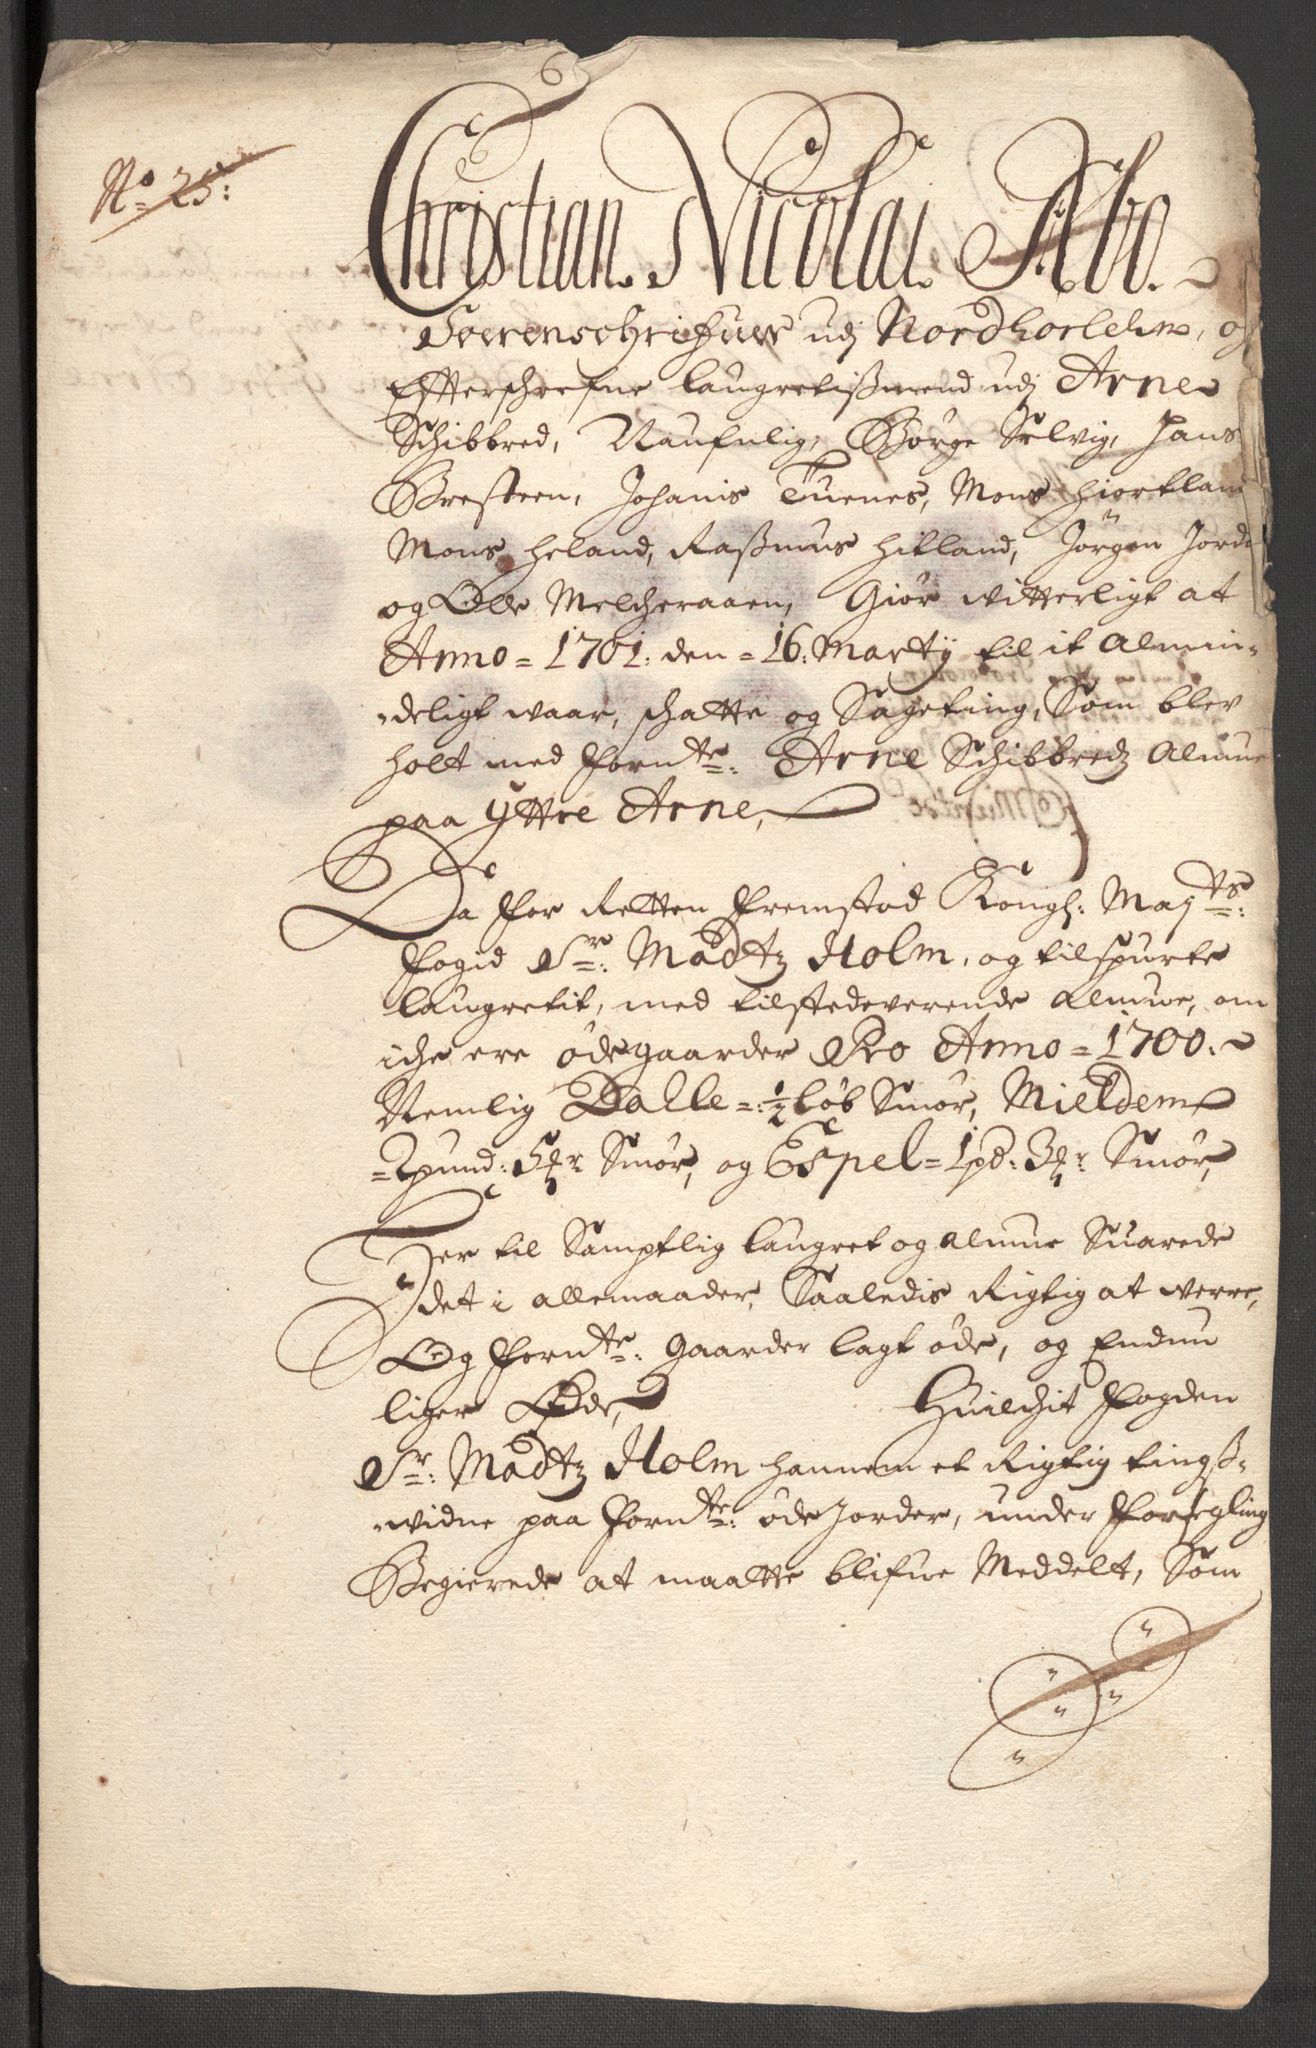 No 25:
Christian Nicolai Abo.
Soerenschrifuer udj Nordhorlehn, og
Effterschrefne laugrettißmend udj Arne
Schibbred, Naufnlig, Børge Selvig, Hans
Bresteen, Johanis Tuenes, Mons Hiortland
Mons Heland, Raßmus Hitland, Jørgen Jorda
og Ole Melcheraaen, Giør witterligt at
Anno = 1701. den = 16. Martij til it Almin-
deligt waar, schatte og Sageting, Som blev
holt med forndte: Arne Schibbredz Almue
paa Yttre Arne,
Da for Retten fremstod Kongl: Majts:
fogid Sr: Madtz Holm, og tilspurte
laugrettit, med tilstedeverende Almue, om
iche ere øde gaarder Pro Anno = 1700.
Nemlig Dalle =: ½ løb Smør, Mieldem
= 2pund: 5mr Smør, og Espel = 1pd: 3mr Smør,
Der til Samptlig laugret og Almue Suarede
det i allemaader, Saaledis Rigtig at werre,
Og forndte: Gaarder lagt øde, og Endnu
liger Øde, Huilchit fogden
Sr: Madtz Holm hannem et Rigtig tingß-
widne paa forndte: øde Jorder, under forsegling
Begierede at maatte blifue Meddelt, Som